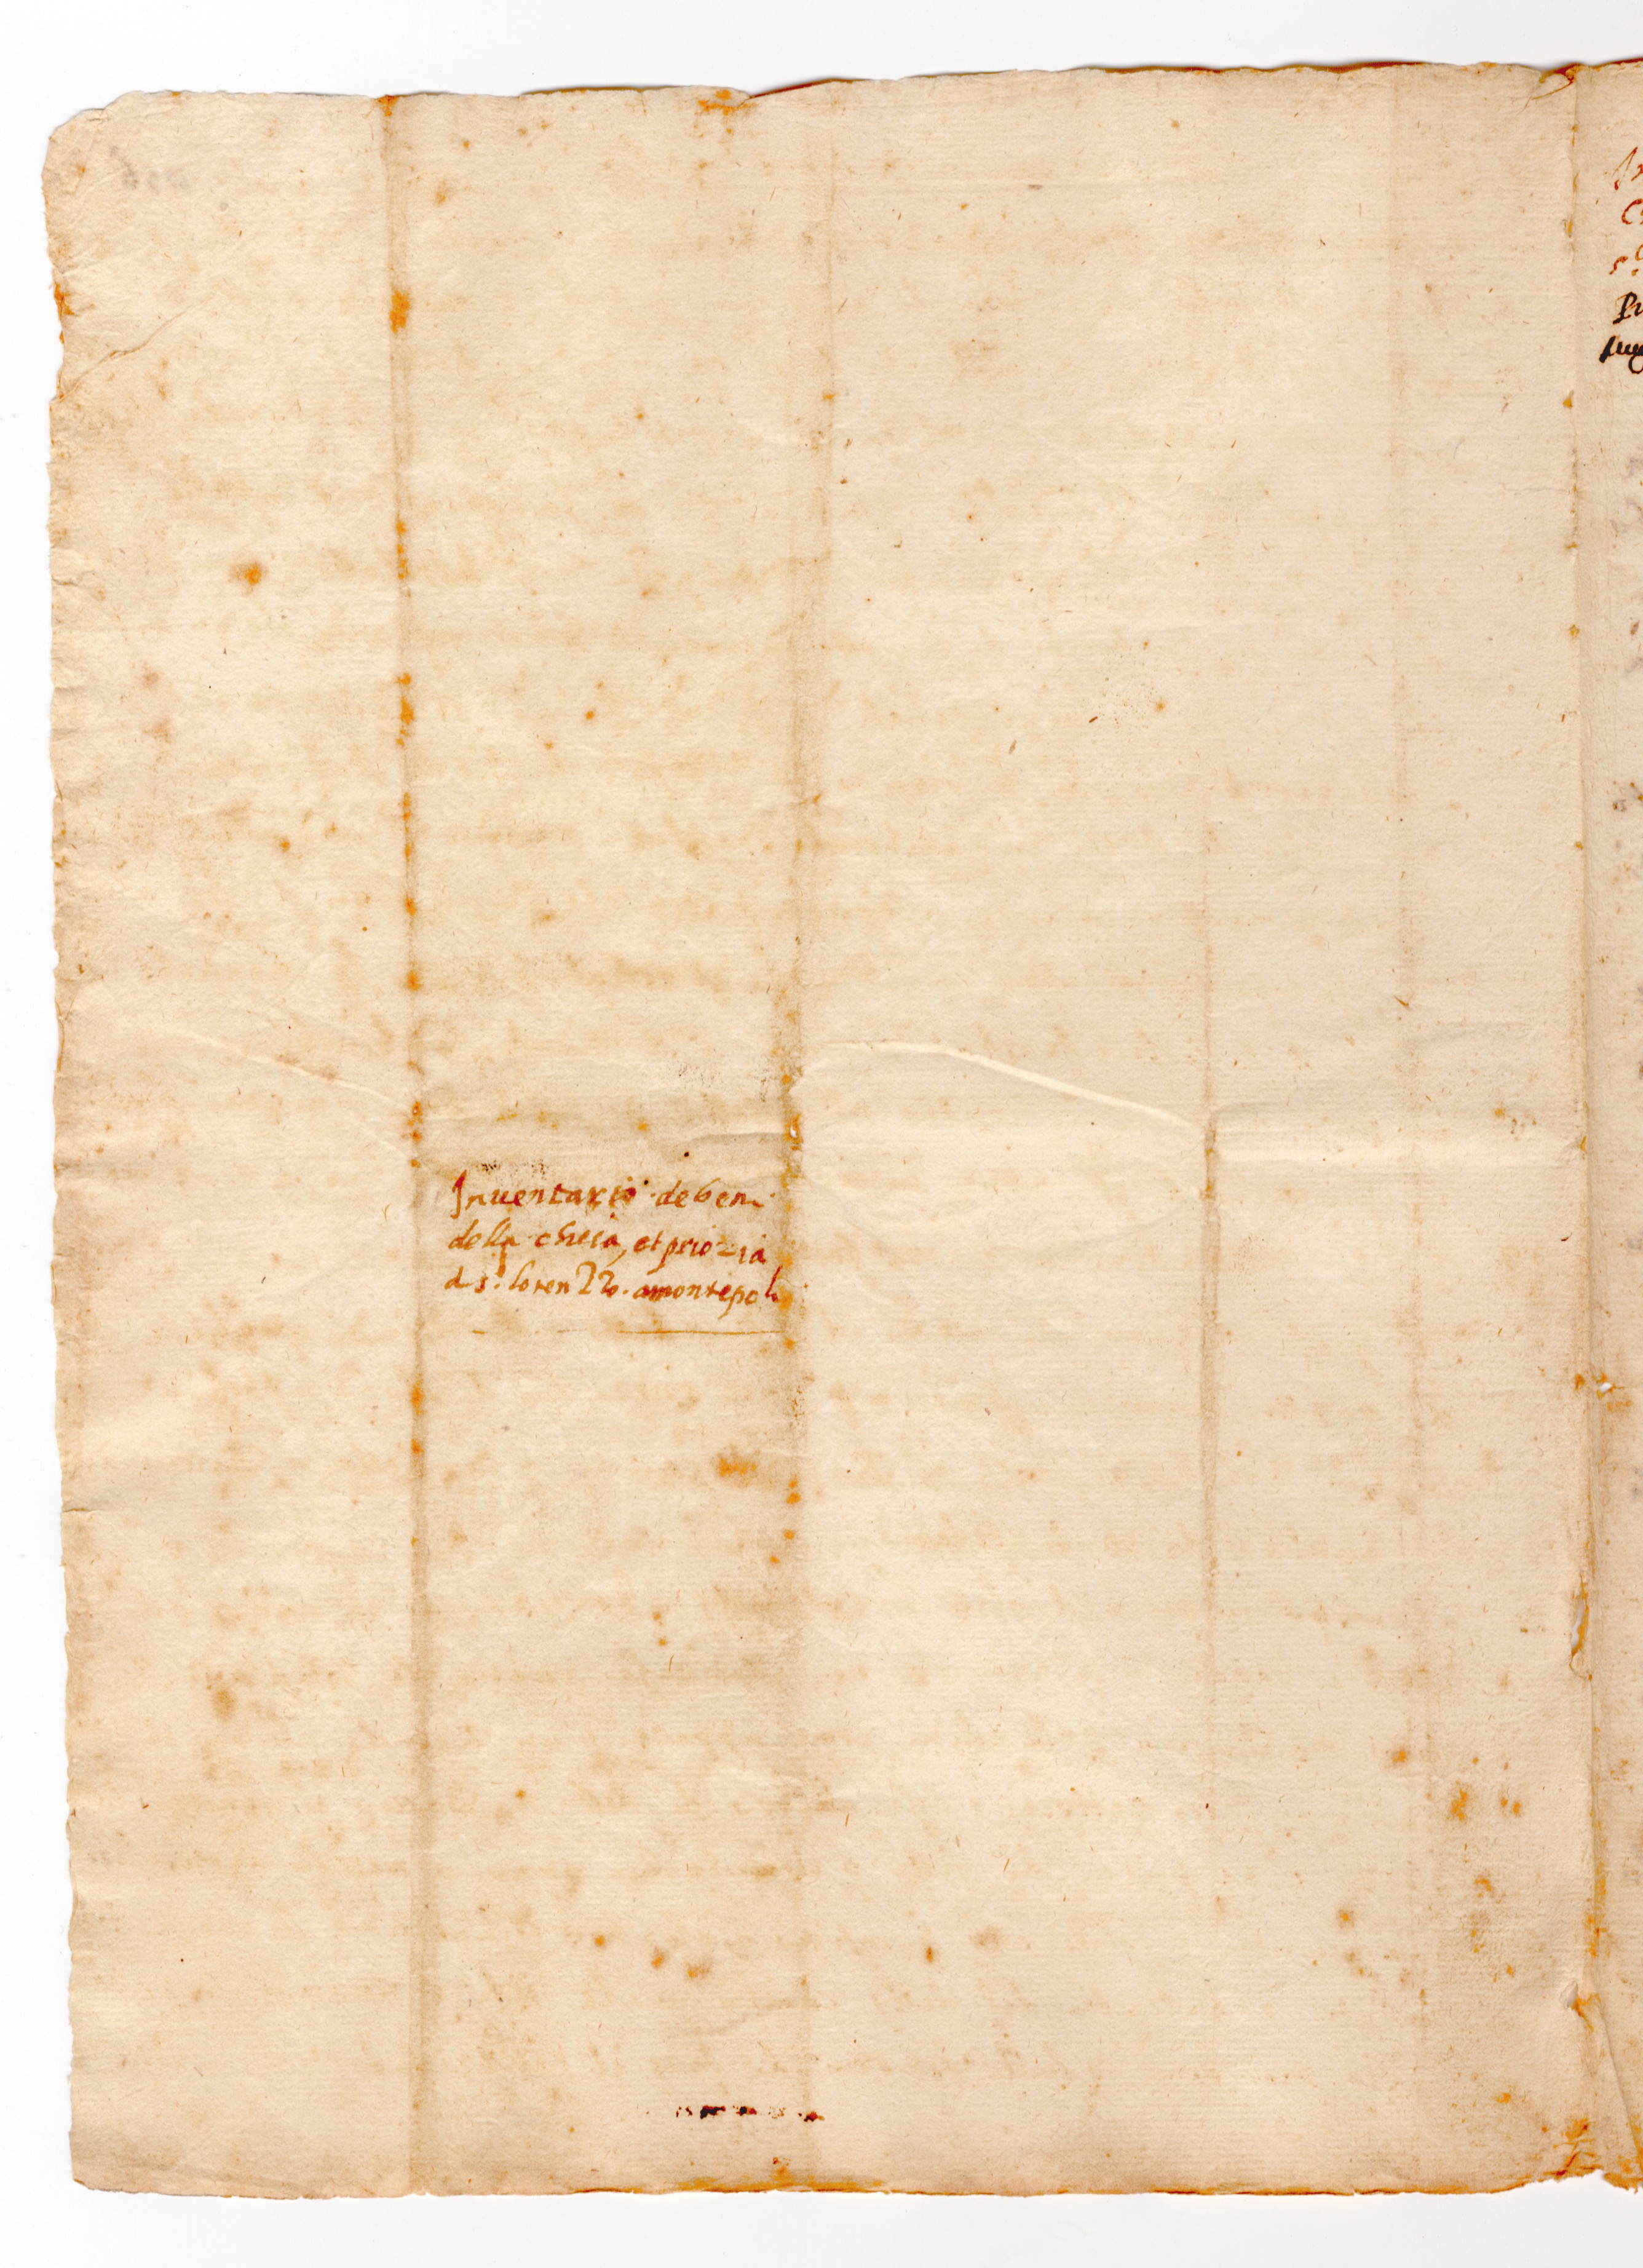 Inuentario debeni
della chieia, et prioria
d s: lorenzo. amontepoli